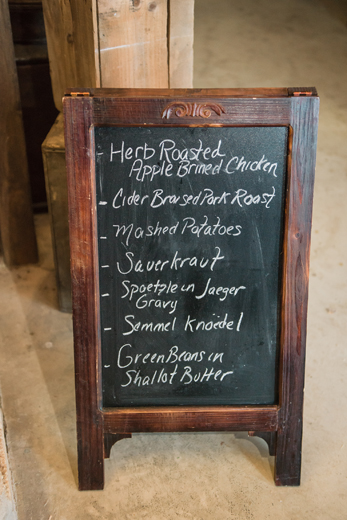 - Herb Roasted
Apple Brined Chicken
- Cider Braised Pork Roast
- Mashed Potatoes
- Sauerkraut
- Spaetzle in Jaeger
Gravy
- Semmel Knoedel
- Green Beans in
Shallot Butter